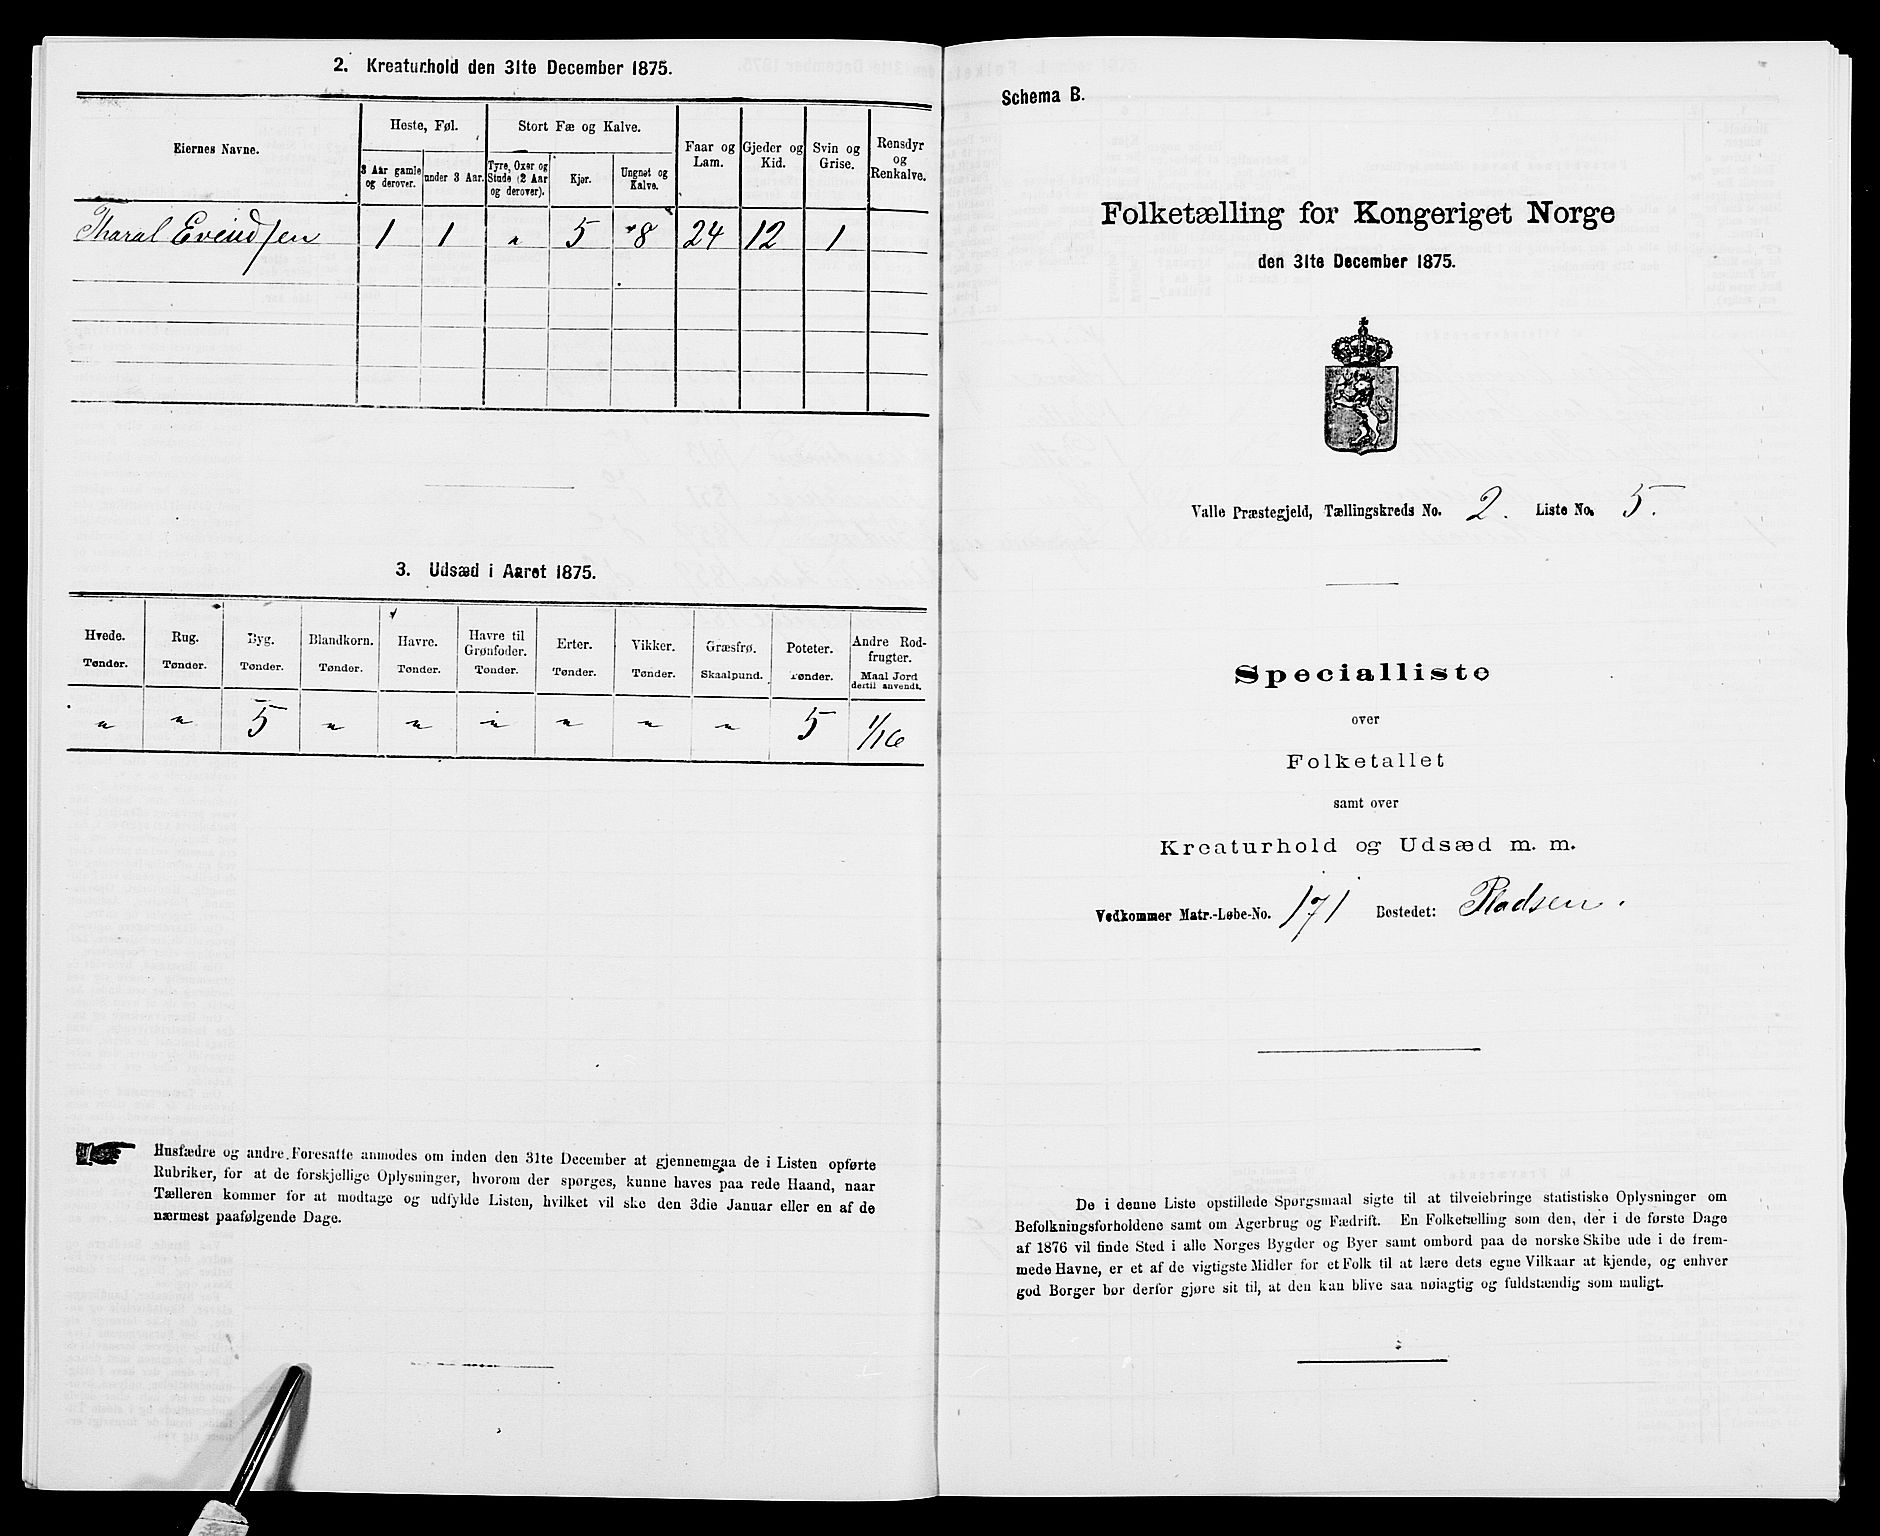 2. Kreaturhold den 31te December 1875.
Eiernes Navne.
Heste, Føl.
Stort Fæ og Kalve.
Faar og Lam.
Gjeder og Kid.
Svin og Grise.
Rensdyr og Renkalve.
3 Aar gamle og derover.
under 3 Aar.
Tyre, Oxer og Stude (2 Aar og derover).
Kjør.
Ungnøt og Kalve.
Tharal Evendsen 1 1 " 5 8 24 12 1
3. Udsæd i Aaret 1875.
Hvede. Rug. Byg. Blandkorn. Havre. Havre til Grønfoder. Erter. Vikker. Græsfrø. Poteter. Andre Rodfrugter.
Tønder. Tønder. Tønder. Tønder. Tønder. Tønder. Tønder. Tønder. Skaalpund. Tønder. Maal Jord dertil anvendt.
" " 5 " " " " " " 5 1/16
Husfædre og andre Foresatte anmodes om inden den 31te December at gjennemgaa de i Listen opførte
Rubriker, for at de forskjellige Oplysninger, hvorom der spørges, kunne haves paa rede Haand, naar
Tælleren kommer for at modtage og udfylde Listen, hvilket vil ske den 3die Januar eller en af de
nærmest paafølgende Dage.
Schema B.
Folketælling for Kongeriget Norge
den 31te December 1875.
Valle Præstegjeld, Tællingskreds No. 2. Liste No. 5.
Specialliste
over
Folketallet
samt over
Kreaturhold og Udsæd m. m.
Vedkommer Matr.-Løbe-No. 171 Bostedet: Pladsen.
De i denne Liste opstillede Spørgsmaal sigte til at tilveiebringe statistiske Oplysninger om
Befolkningsforholdene samt om Agerbrug og Fædrift. En Folketælling som den, der i de første Dage
af 1876 vil finde Sted i alle Norges Bygder og Byer samt ombord paa de norske Skibe ude i de frem-
mede Havne, er et af de vigtigste Midler for et Folk til at lære dets egne Vilkaar at kjende, og enhver
god Borger bør derfor gjøre sit til, at den kan blive saa nøiagtig og fuldstændig som muligt.